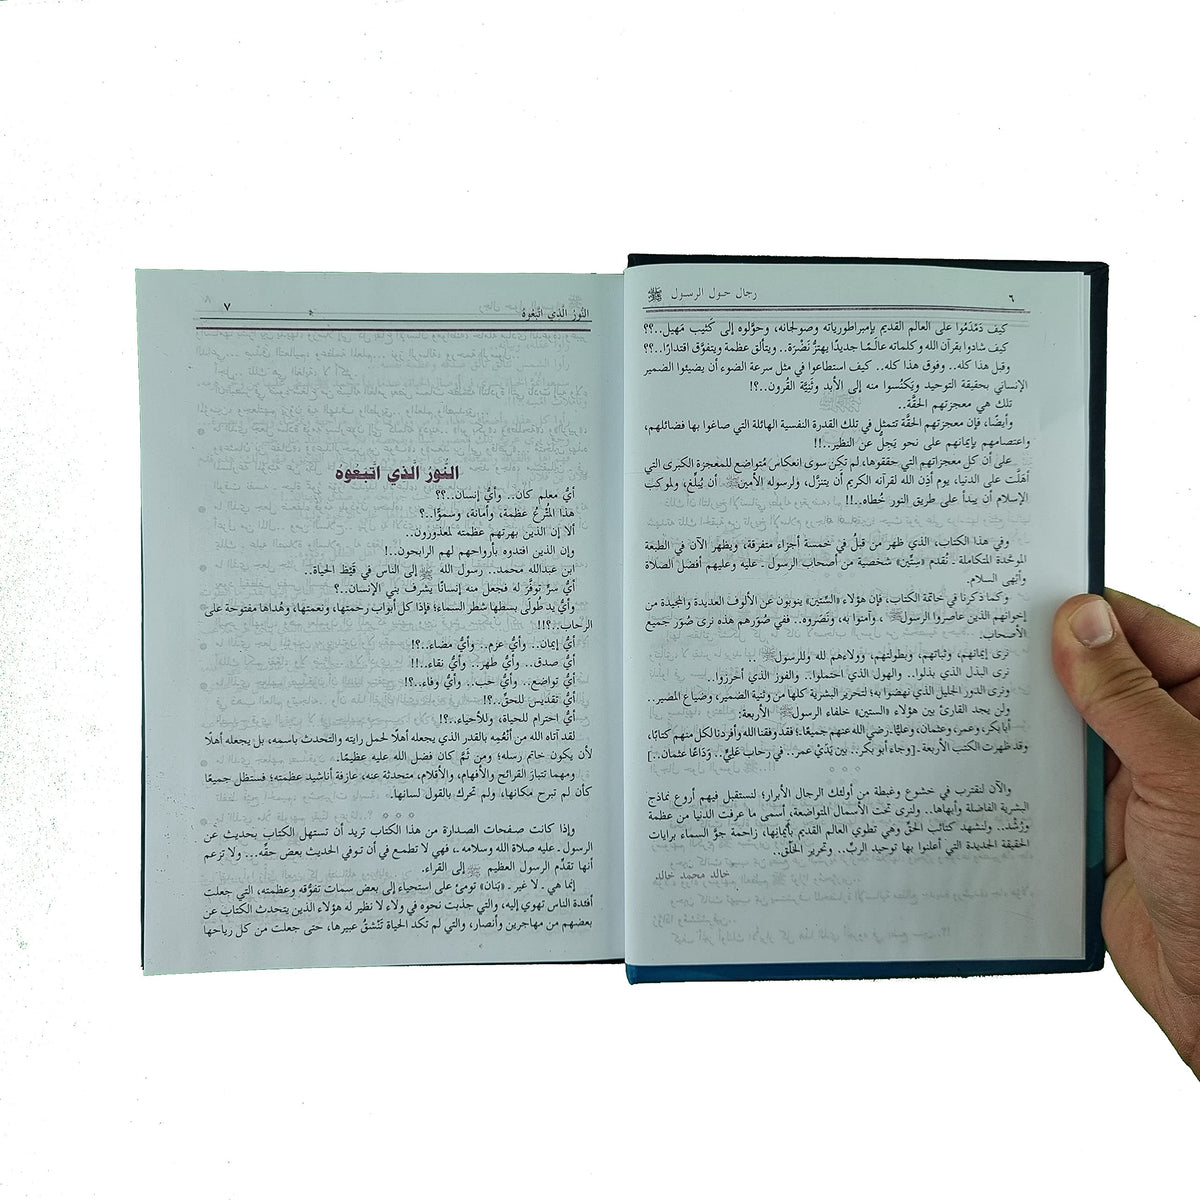 ٦ رجال حول الرسول ﷺ
كيف دَمْدَمُوا على العالم القديم بإمبراطورياته وصولجانه، وحوَّلوه إلى كَثيب مَهيل..؟؟
كيف شادوا بقرآن الله وكلماته عالَمًا جديدًا يهتزُّ نَضْرَة.. ويتألق عظمة ويتفوَّق اقتدارًا..؟؟
وقبل هذا كله.. وفوق هذا كله.. كيف استطاعوا في مثل سرعة الضوء أن يضيئوا الضمير
الإنساني بحقيقة التوحيد ويَكنُسوا منه إلى الأبد وثَنِيَّة القُرون..؟!
تلك هي معجزتهم الحقَّة..
وأيضًا، فإن معجزتهم الحقَّة تتمثل في تلك القدرة النفسية الهائلة التي صاغوا بها فضائلهم،
واعتصامهم بإيمانهم على نحو يَجِلُّ عن النظير..!!
على أن كل معجزاتهم التي حققوها، لم تكن سوى انعكاس مُتواضع للمعجزة الكبرى التي
أهَلَّت على الدنيا، يوم أذِن الله لقرآنه الكريم أن يتنزَّل، ولرسوله الأمين ﷺ أن يُبلِّغ، ولموكب
الإسلام أن يبدأ على طريق النور خُطاه..!!
وفي هذا الكتاب، الذي ظهر من قبلُ في خمسة أجزاء متفرقة، ويظهر الآن في الطبعة
الموحَّدة المتكاملة ـ نُقدم «ستِّين» شخصية من أصحاب الرسول ـ عليه وعليهم أفضل الصلاة
وأبهى السلام.
وكما ذكرنا في خاتمة الكتاب، فإن هؤلاء «السِّتين» ينوبون عن الألوف العديدة والمجيدة من
إخوانهم الذين عاصروا الرسول ﷺ، وآمنوا به، ونَصَروه.. ففي صُوَرهم هذه نرى صُوَر جميع
الأصحاب.
نرى إيمانهم، وثباتهم، وبطولتهم، وولاءهم لله وللرسول ﷺ ..
نرى البذل الذي بذلوا.. والهول الذي احتملوا.. والفوز الذي أحرزوا..
ونرى الدور الجليل الذي نهضوا به؛ لتحرير البشرية كلها من وثنية الضمير، وضياع المصير..
ولن يجد القارئ بين هؤلاء «الستين» خلفاء الرسول ﷺ الأربعة:
أبا بكر، وعمر، وعثمان، وعليًّا ـ رضي الله عنهم جميعًا ـ؛ فقد وفقنا الله وأفردنا لكل منهم كتابًا،
وقد ظهرت الكتب الأربعة ـ [وجاء أبو بكر.. بين يَدَيْ عمر.. في رحاب عَليٍّ.. وَدَاعًا عثمان..]
والآن لنقترب في خشوع وغبطة من أولئك الرجال الأبرار؛ لنستقبل فيهم أروع نماذج
البشرية الفاضلة وأبهاها.. ولنرى تحت الأسمال المتواضعة، أسمى ما عرفت الدنيا من عظمة
ورُشْد.. ولنشهد كتائب الحقّ وهي تطوي العالم القديم بأَيْمانِها، زاحمة جوَّ السماء برايات
الحقيقة الجديدة التي أعلنوا بها توحيد الربِّ.. وتحرير الخَلْق..
خالد محمد خالد
النُّورُ الَّذي اتَّبَعُوهُ ٧
النُّورُ الَّذي اتَّبَعُوه
أيُّ معلم كان.. وأيُّ إنسان..؟؟
هذا المُتْرَعُ عظمة، وأمانة، وسُموًّا..؟
ألا إن الذين بهرتهم عظمته لمعذورون..
وإن الذين افتدوه بأرواحهم لهم الرابحون..!
ابن عبدالله محمد.. رسول الله ﷺ إلى الناس في قَيْظ الحياة..
أيُّ سرٍّ توفَّرَ له فجعل منه إنسانًا يُشرف بني الإنسان..؟
وأيُّ يد طُولَى بسطها شطر السماء؛ فإذا كل أبواب رحمتها، ونعمتها، وهُداها مفتوحة على
الرحاب..؟!!
أيُّ إيمان.. وأيُّ عزم.. وأيُّ مضاء..؟!
أيُّ صدق.. وأيُّ طهر.. وأيُّ نقاء..!!
أيُّ تواضع.. وأيُّ حب.. وأيُّ وفاء..؟!
أيُّ تقديس للحقِّ..؟!
أيُّ احترام للحياة، وللأحياء..؟!
لقد آتاه الله من أنْعُمِه بالقدر الذي يجعله أهلًا لحمل رايته والتحدث باسمه، بل يجعله أهلًا
لأن يكون خاتم رسله؛ ومن ثَمَّ كان فضل الله عليه عظيمًا..
ومهما تتبارَ القرائح والأفهام، والأقلام، متحدثة عنه، عازفة أناشيد عظمته؛ فستظل جميعًا
كأن لم تبرح مكانها، ولم تحرك بالقول لسانها.
وإذا كانت صفحات الصدارة من هذا الكتاب تريد أن تستهل الكتاب بحديث عن
الرسول ـ عليه صلاة الله وسلامه ـ، فهي لا تطمع في أن توفي الحديث بعض حقِّه... ولا تزعم
أنها تقدِّم الرسول العظيم ﷺ إلى القراء.
إنما هي ـ لا غير ـ «بَنان» تومئ على استحياء إلى بعض سمات تفوُّقه وعظمته، التي جعلت
أفئدة الناس تهوي إليه، والتي جذبت نحوه في ولاء لا نظير له هؤلاء الذين يتحدث الكتاب عن
بعضهم من مهاجرين وأنصار، والتي لم تكد الحياة تَتَنَسَّق عبيرها، حتى جعلت من كل رياحها